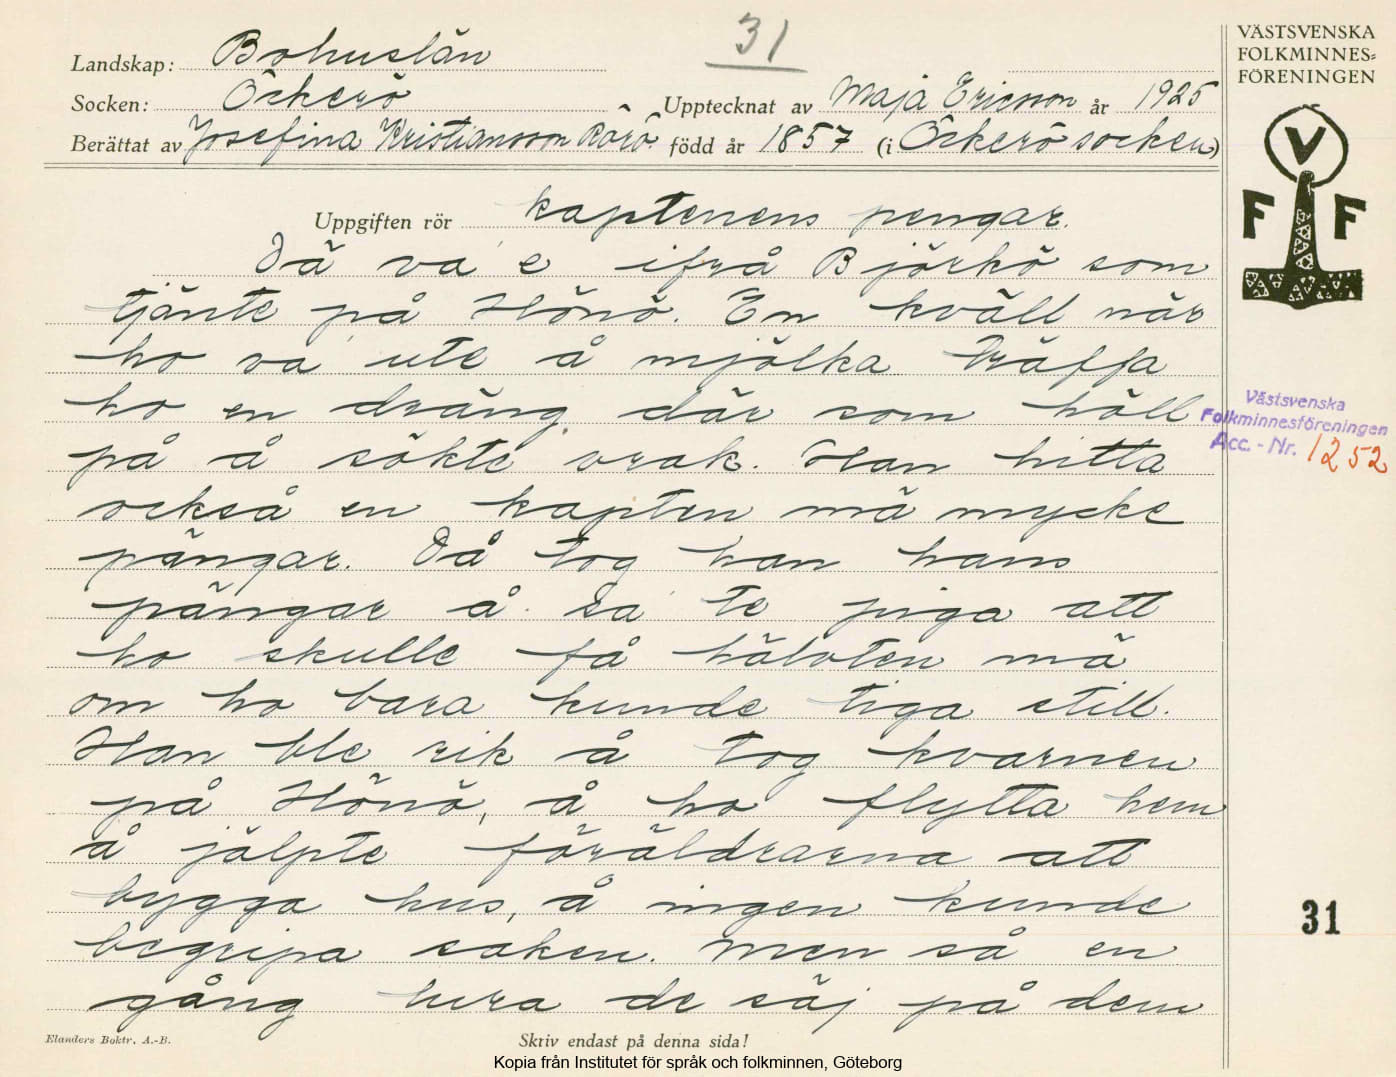 31
VÄSTSVENSKA
FOLKMINNES=
FÖRENINGEN
Landskap: Bohuslän
Socken: Öckerö
Upptecknat av Maja Ericsson år 1925
Berättat av Josefina Kristiansson Rörö. född år 1857 (i Öckerö socken)
V
F F
Uppgiften rör kaptenens pengar.
Dä va e ifrå Björkö som
tjänte på Hönö. En kväll när
ho va ute å mjölka träffa
ho en dräng där som höll
på å sökte vrak. Han hitta
också en kapten mä mycke
pängar. Då tog han hans
pängar å sa te piga att
ho skulle få hälvten mä
om ho bara kunde tiga still.
Han ble rik å tog kvarnen
på Hönö, å ho flytta hem
å jälpte föräldrarna att
bygga hus, å ingen kunde
begripa saken. Men så en
gång lura de säj på dem
Västsvenska
Folkminnesföreningen
Acc. - Nr. 1252
31
Elanders Boktr. A.-B.
Skriv endast på denna sida!
Kopia från Institutet för språk och folkminnen, Göteborg